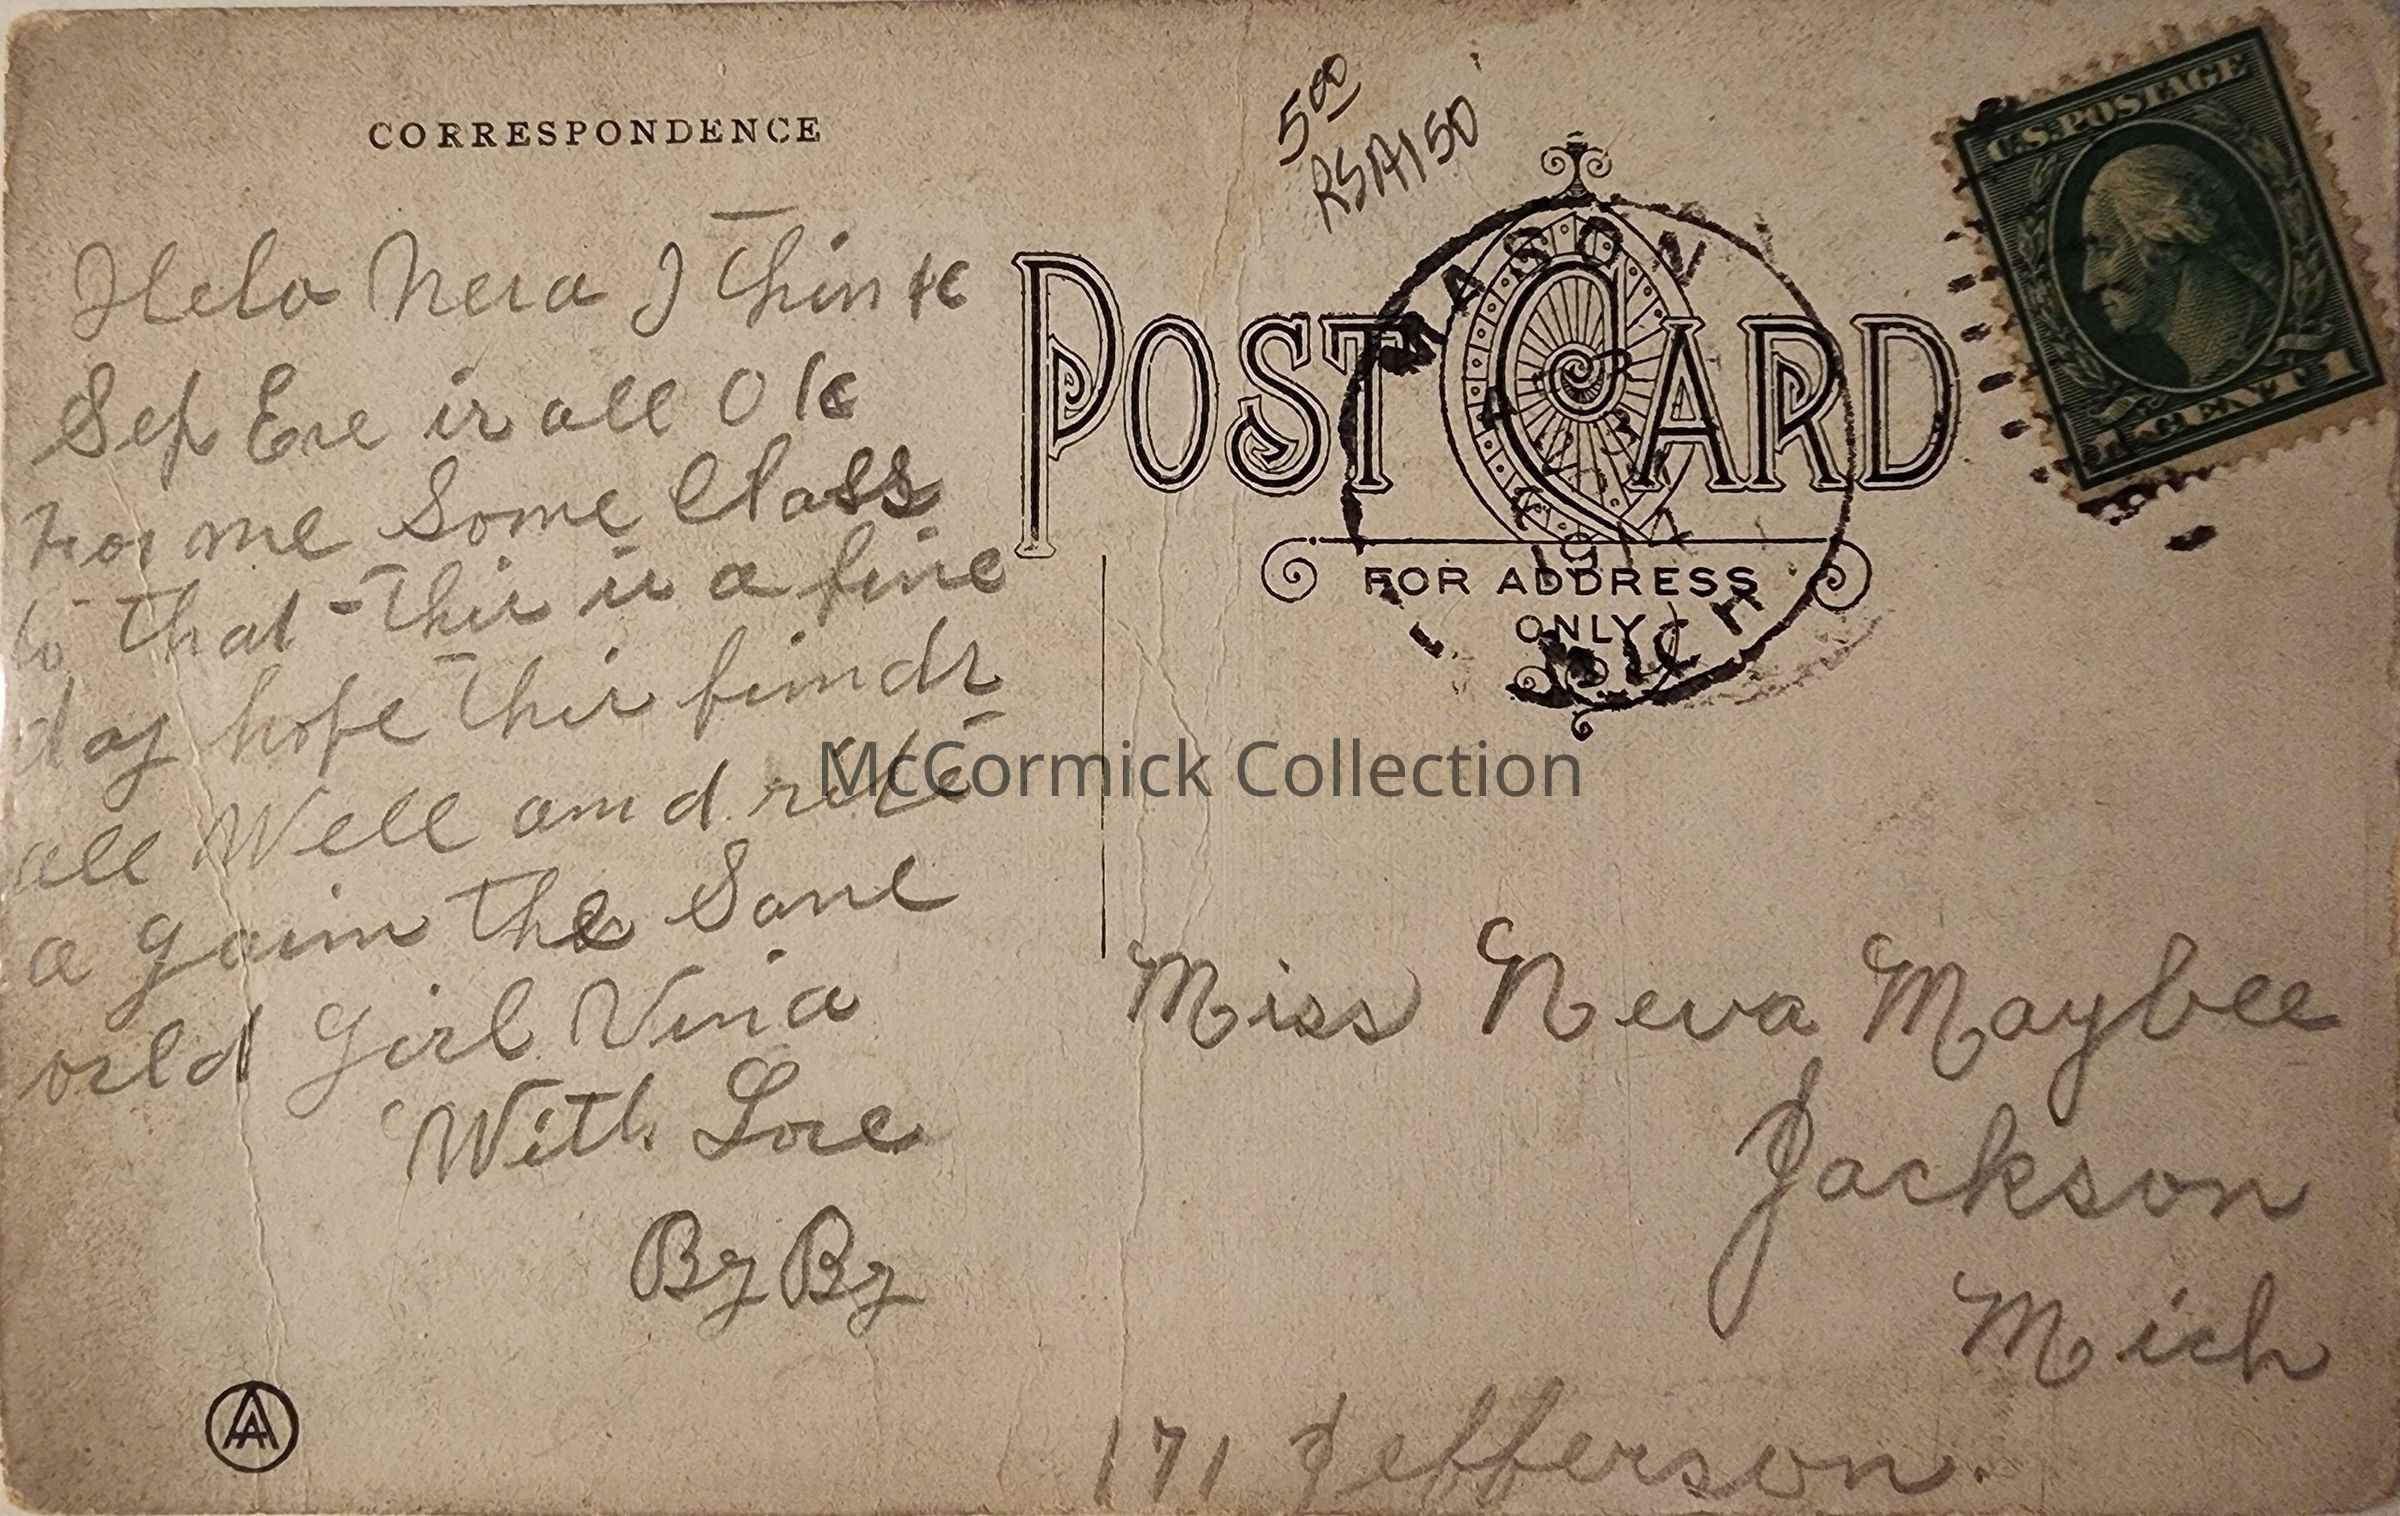 CORRESPONDENCE
Helo Neva I Think
Sep Eve is all OK
For me Some Class
to that - This is a fine
day hope This finds
all Well and rite
a gain the Same
orld Girl Vina
With Love
By By
AA
5.00
RSA150
POST CARD
FOR ADDRESS
ONLY
MASON
MICH
U.S. POSTAGE
1 CENT 1
McCormick Collection
Miss Neva Maybee
Jackson
Mich
171 Jefferson.